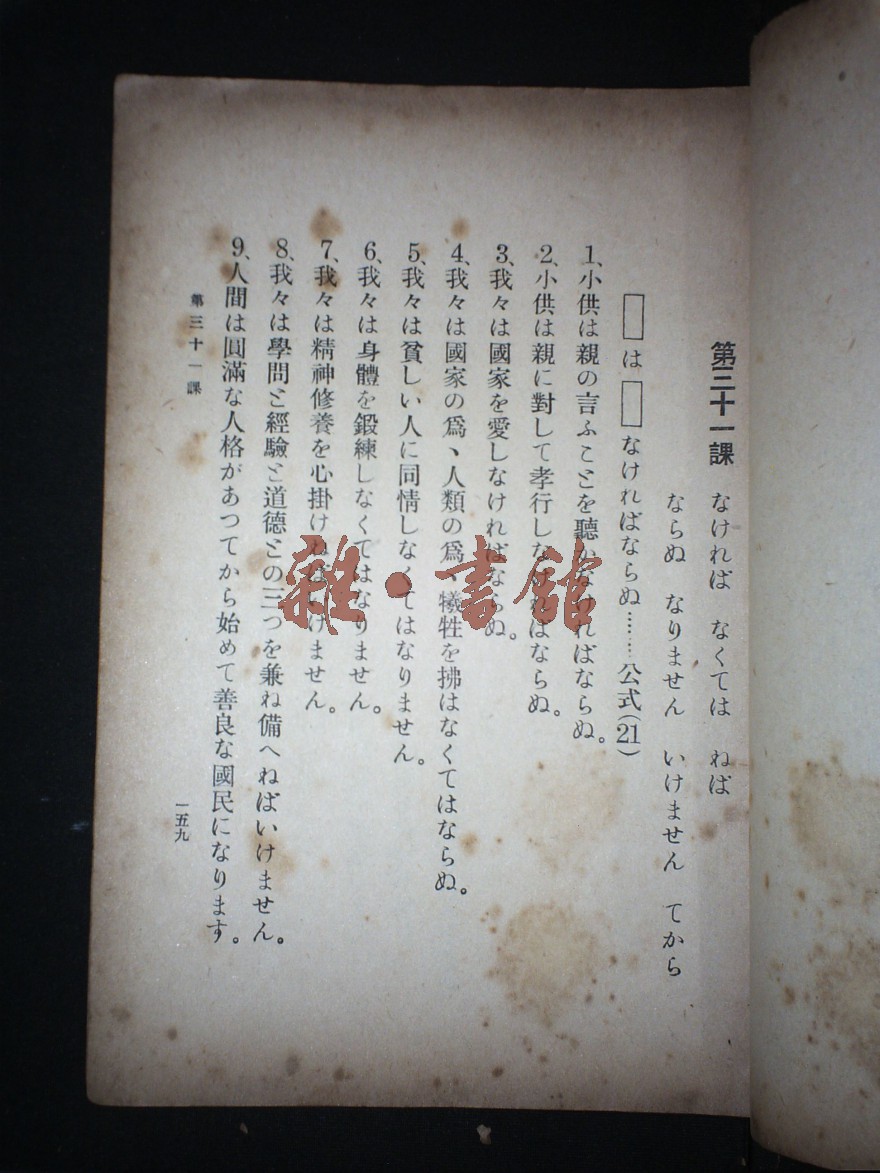 第三十一課　なければ　なくては　ねば
ならぬ　なりません　いけません　てから
□は□なければならぬ……公式(21)
1、小供は親の言ふことを聽かなければならぬ。
2、小供は親に對して孝行しなければならぬ。
3、我々は國家を愛しなければならぬ。
4、我々は國家の爲、人類の爲、犧牲を拂はなくてはならぬ。
5、我々は貧しい人に同情しなくてはなりません。
6、我々は身體を鍛練しなくてはなりません。
7、我々は精神修養を心掛けねばいけません。
8、我々は學問と經驗と道德との三つを兼ね備へねばいけません。
9、人間は圓滿な人格があつてから始めて善良な國民になります。
第三十一課
一五九
雜·書館